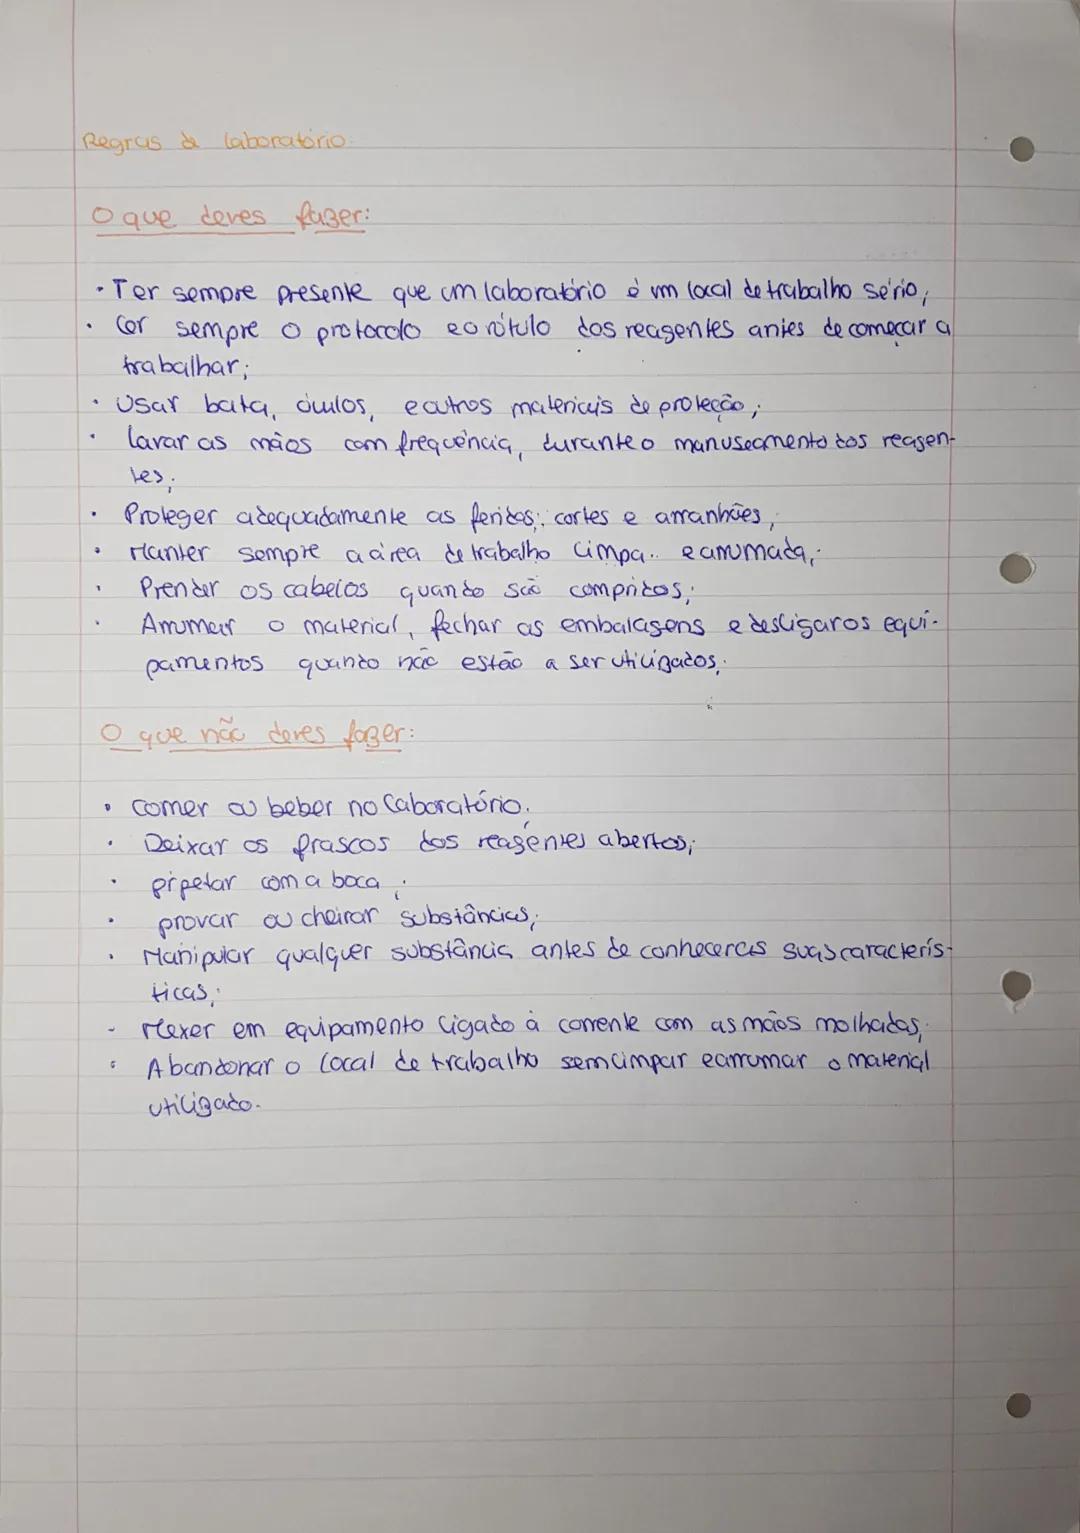 Regras de laboratório:
O que deves fazer:
• Ter sempre presente que um laboratório é um local de trabalho sério;
• Ler sempre o protocolo e o rótulo dos reagentes antes de começar a
trabalhar;
• Usar bata, óculos, e outros materiais de proteção;
• Lavar as mãos com frequência, durante o manuseamento dos reagen-
tes;
• Proteger adequadamente as feridas; cortes e arranhões;
• Manter sempre a área de trabalho limpa e arrumada;
• Prender os cabelos quando são compridos;
• Arrumar o material, fechar as embalagens e desligar os equi-
pamentos quando não estão a ser utilizados;
O que não deves fazer:
• Comer ou beber no laboratório;
• Deixar os frascos dos reagentes abertos;
• pipetar com a boca;
• provar ou cheirar substâncias;
• Manipular qualquer substância antes de conhecer as suas caracterís-
ticas;
• Mexer em equipamento ligado à corrente com as mãos molhadas;
• Abandonar o local de trabalho sem limpar e arrumar o material
utilizado.